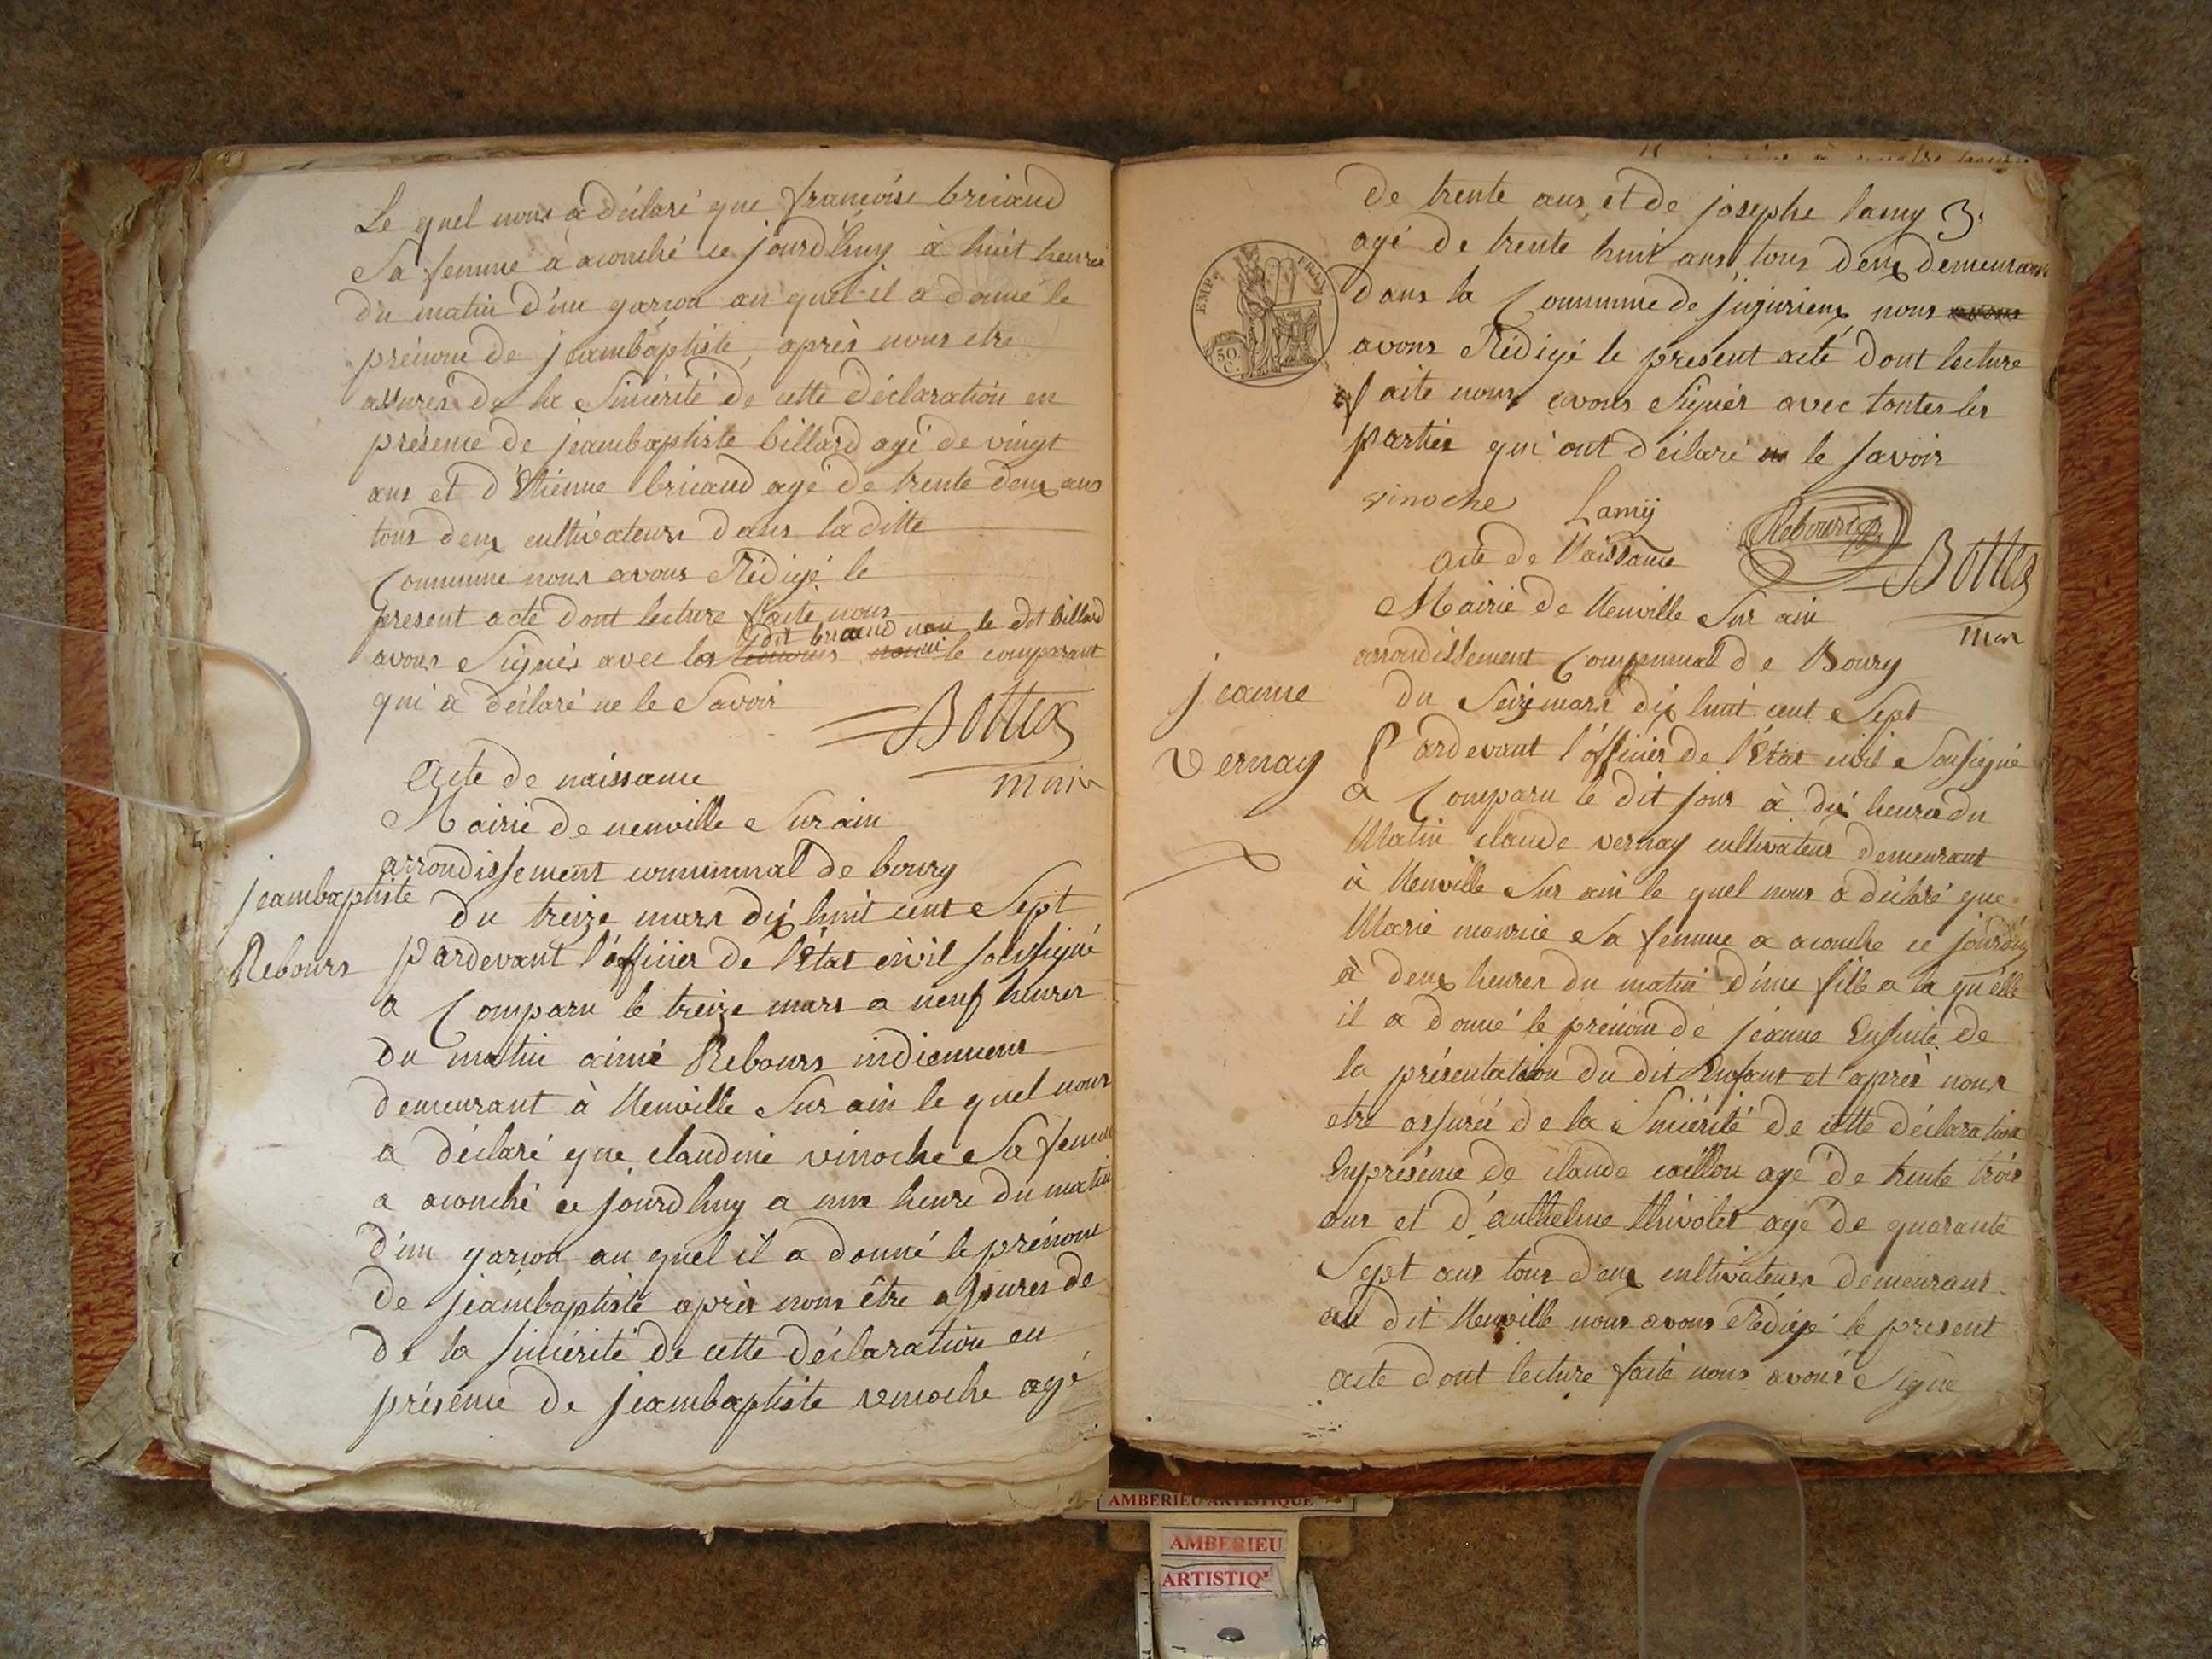 Le quel nous a déclaré que françoise bricaud
Sa femme a acouché ce jourd'huy à huit heures
du matin d'un garçon au quel il a donné le
prénom de jeambaptiste, après nous etre
assurés de la Sincérité de cette déclaration en
présence de jeambaptiste billard agé de vingt
ans et d'Etienne bricaud agé de trente deux ans
tous deux cultivateurs dans la ditte
Commune nous avons Rédigé le
present acte dont lecture faite nous
dit bricaud non le dit billard
avons Signés avec les temoins le comparant
qui a déclaré ne le Savoir
Bottex
maire
Acte de naissance
Mairie de neuville Sur ain
arrondissement communal de bourg
jeambaptiste
Rebours
du treize mars dix huit cent Sept
Pardevant l'officier de l'Etat civil soussigné
a Comparu le treize mars a neuf heures
du matin aimé Rebours indienneur
demeurant à Neuville Sur ain le quel nous
a déclaré que claudine vinoche Sa femme
a acouché ce jourdhuy a une heure du matin
d'un garçon au quel il a donné le prénom
de jeambaptiste après nous être assures de
de la sincérité de cette déclaration en
présence de jeambaptiste vinoche agé
de trente ans et de josephe lamy
agé de trente huit ans tous deux demeurans
dans la Commune de jujurieux nous avons
avons Rédigé le présent acte dont lecture
faite nous avons Signés avec toutes les
parties qui ont déclaré le savoir
EMP. FRAN.
50 C.
vinoche Lamÿ Rebours
Bottex
maire
Acte de Naissance
Mairie de Neuville Sur ain
arrondissement Communal de Bourg
jeanne
vernay
du Seize mars dix huit cent Sept
Pardevant l'officier de l'Etat civil Soussigné
a Comparu le dit jour à dix heures du
Matin claude vernay cultivateur demeurant
à Neuville Sur ain le quel nous a déclaré que
Marie mauricé Sa femme a acouche ce jourdhuy
à deux heures du matin d'une fille a la qu'elle
il a donné le prénom de jeanne Ensuite de
la présentation du dit Enfant et après nous
etre assurés de la Sincérité de cette déclaration
En présence de claude caillou agé de trente trois
ans et d'anthelme thivolet agé de quarante
Sept ans tous deux cultivateurs demeurans
au dit Neuville nous avons Rédigé le present
acte dont lecture faite nous avons Signé
AMBERIEU ARTISTIQUE
AMBERIEU
ARTISTIQ